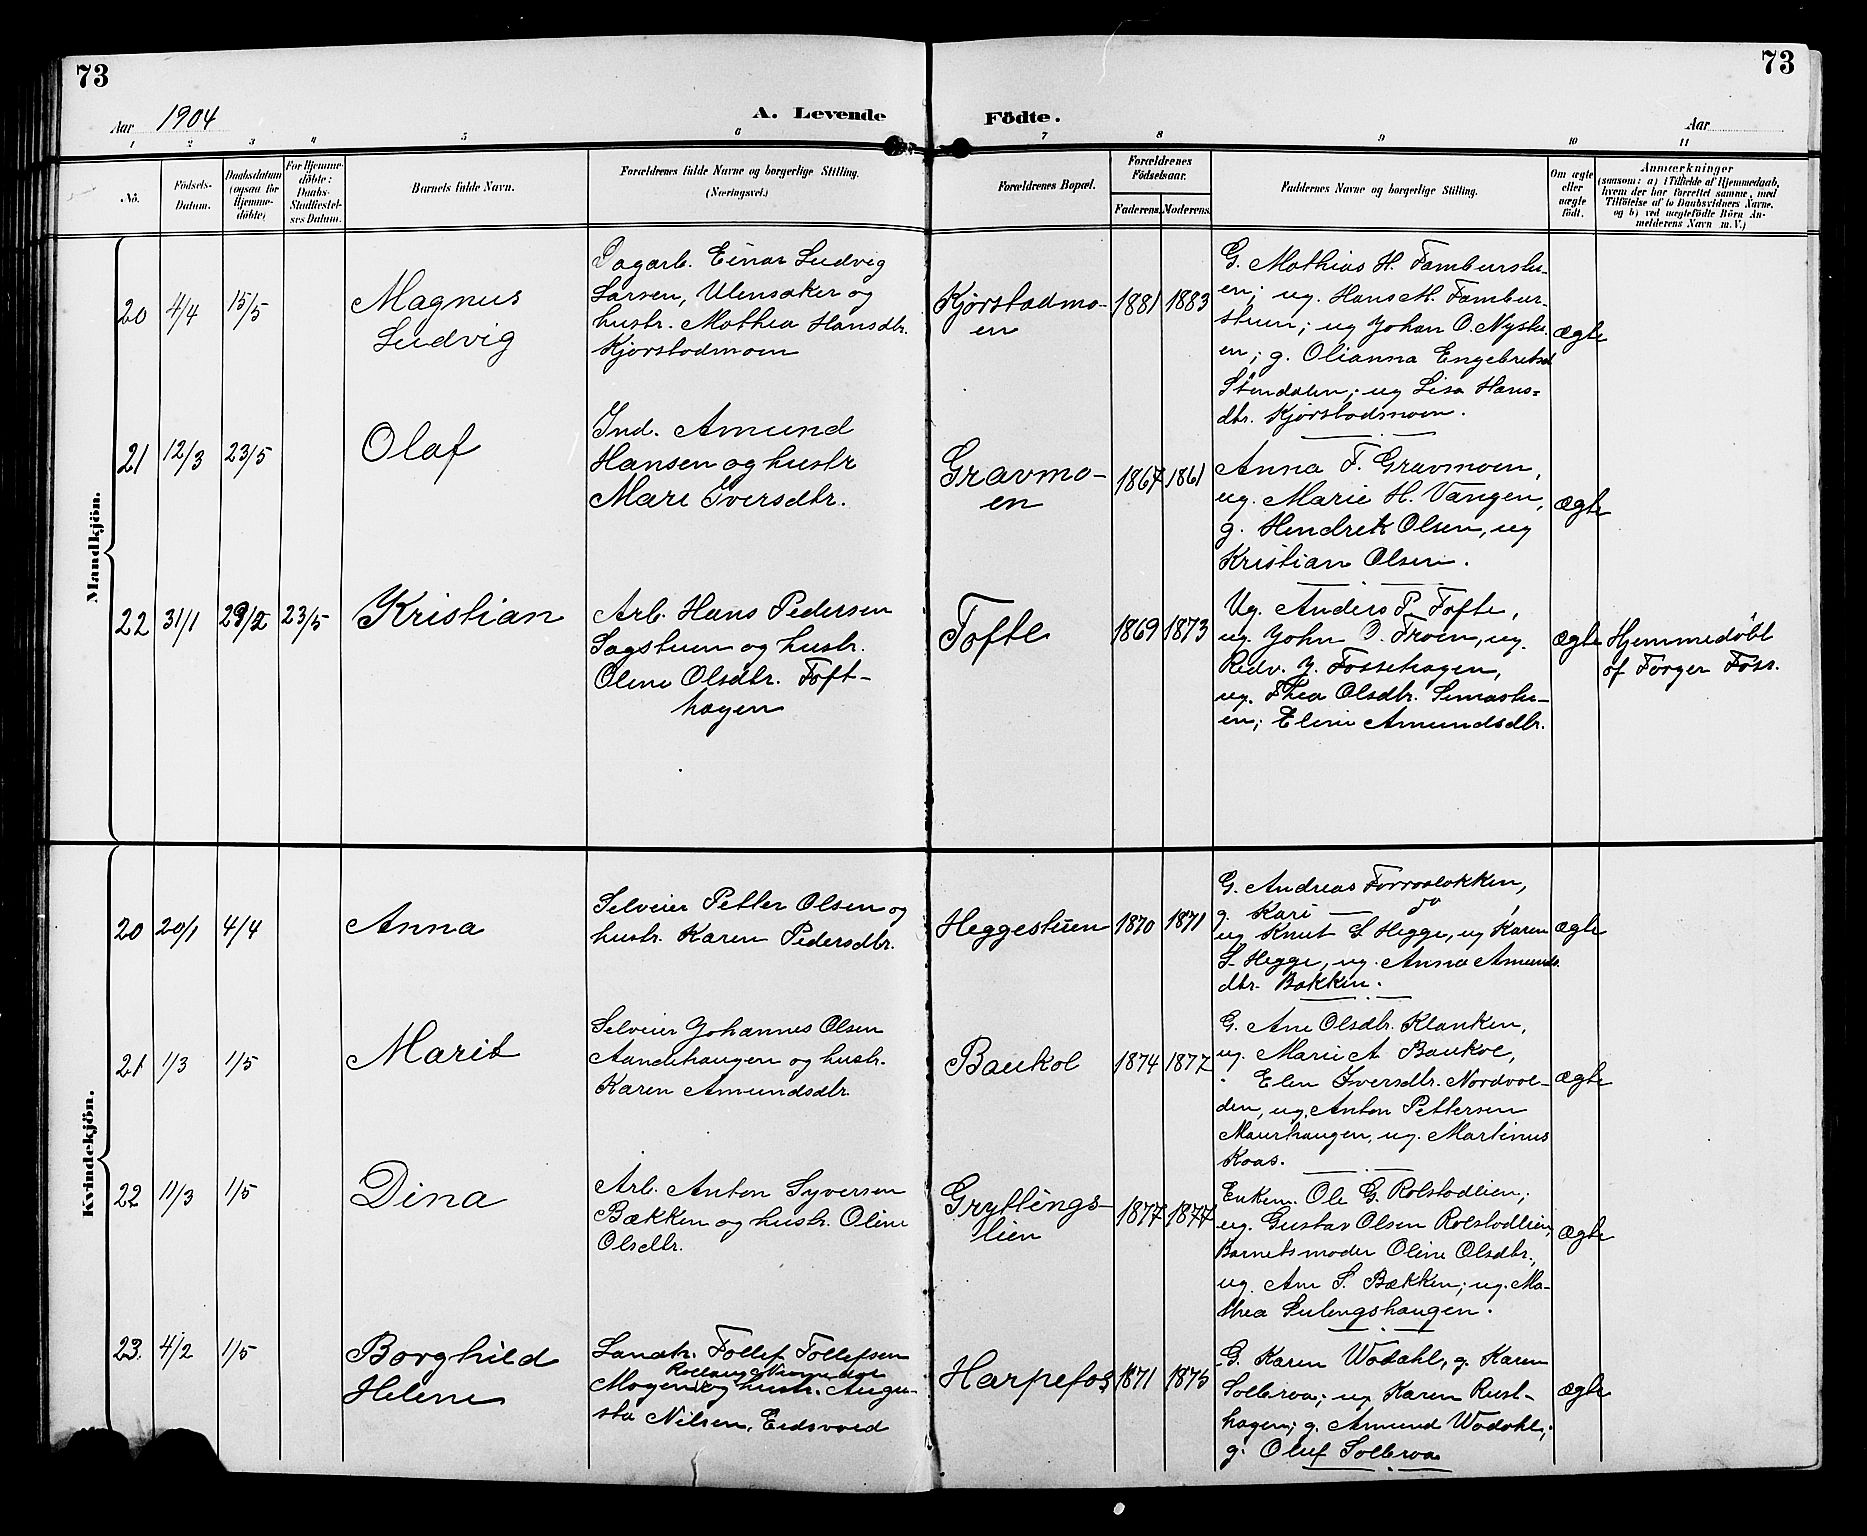 73
73
Aar 1904
A. Levende Födte.
Aar
1 2 3 4 5 6 7 8 9 10 11
No.
Födsels-
Datum.
Daabsdatum
(ogsaa for
Hjemme-
döbte)
For Hjemme-
döbte:
Daabs-
Stadfæstel-
ses Datum.
Barnets fulde Navn.
Forældrenes fulde Navne og borgerlige Stilling.
(Næringsvei.)
Forældrenes Bopæl.
Forældrenes
Födselsaar.
Faderens. Moderens.
Faddernes Navne og borgerlige Stilling.
Om ægte
eller
uægte
födt.
Anmærkninger
(saasom: a) i Tilfælde af Hjemmedaab,
hvem der har forrettet samme, med
Tilföielse af to Daabsvidners Navne.
og b) ved uægtefödte Börn An-
melderens Navn m. V.)
Mandkjön.
20 4/4 15/5
Magnus
Ludvig
Dagarb. Einar Ludvig
Larsen, Ulensaker og
hustr. Mathea Hansdtr.
Kjørstadmoen
Kjørstadmo-
en
1881 1883
G. Mathias H. Tamburstu-
en; ug. Hans M. Tambur-
stuen; ug Johan O. Nystu-
en; g. Olianna Engebretsd
Stendalen; ug Lisa Hans-
dtr. Kjørstadsmoen.
ægte
21 12/3 23/5
Olaf
Ind. Amund
Hansen og hustr
Mari Iversdtr.
Gravmo-
en
1867 1861
Anna T. Gravmoen,
ug. Marie H. Vangen,
g. Hendrik Olsen, ug
Kristian Olsen.
ægte
22 31/1 29/2 23/5
Kristian
Arb. Hans Pedersen
Sagstuen og hustr.
Oline Olsdtr. Toft-
hagen
Tofte
1869 1873
Ug. Anders P. Tofte,
ug. John O. Troen, ug.
Redv. J. Fossehagen,
ug. Thea Olsdtr. Simastu-
en; Eline Amundsdtr.
ægte
Hjemmedøbt
af Torger Foss.
Kvindekjön.
20 20/1 4/4
Anna
Selveier Petter Olsen og
hustr. Karen Pedersdtr.
Heggestuen
1870 1871
G. Andreas Forrosløkken,
g. Kari — do ,
ug Knut S Hegge, ug Karen
S. Hegge, ug. Anna Amunds
dtr. Bakken.
ægte
21 1/3 1/5
Marit
Selveier Johannes Olsen
Aandehaugen og hustr.
Karen Amundsdtr.
Baukol
1874 1877
G. Ane Olsdtr. Klanken,
ug. Marie A. Baukol,
" Elen Iversdtr. Nordvol-
den, ug. Anton Pettersen
Maurhaugen, ug. Martinus
Koas.
ægte
22 11/3 1/5
Dina
Arb. Anton Syversen
Bækken og hustr. Oline
Olsdtr.
Gryttings-
lien
1877 1877
Enkem. Ole G. Rolstadlien;
ug. Gustav Olsen Rolstadlien,
Barnetsmoder Oline Olsdtr.,
ug. Ane S. Bækken; ug. Ma-
thea Sulengshaugen.
ægte
23. 4/2 1/5
Borghild
Helene
Landh. Tollef Tollefsen
Mogen og hustr. Augu-
sta Nilsen, Eidsvold
Harpefos
1871 1875
G. Karen Wodahl, g. Karen
Solbraa; ug Karen Rust-
hagen; g. Amund Wodahl;
g. Oluf Solbraa
ægte